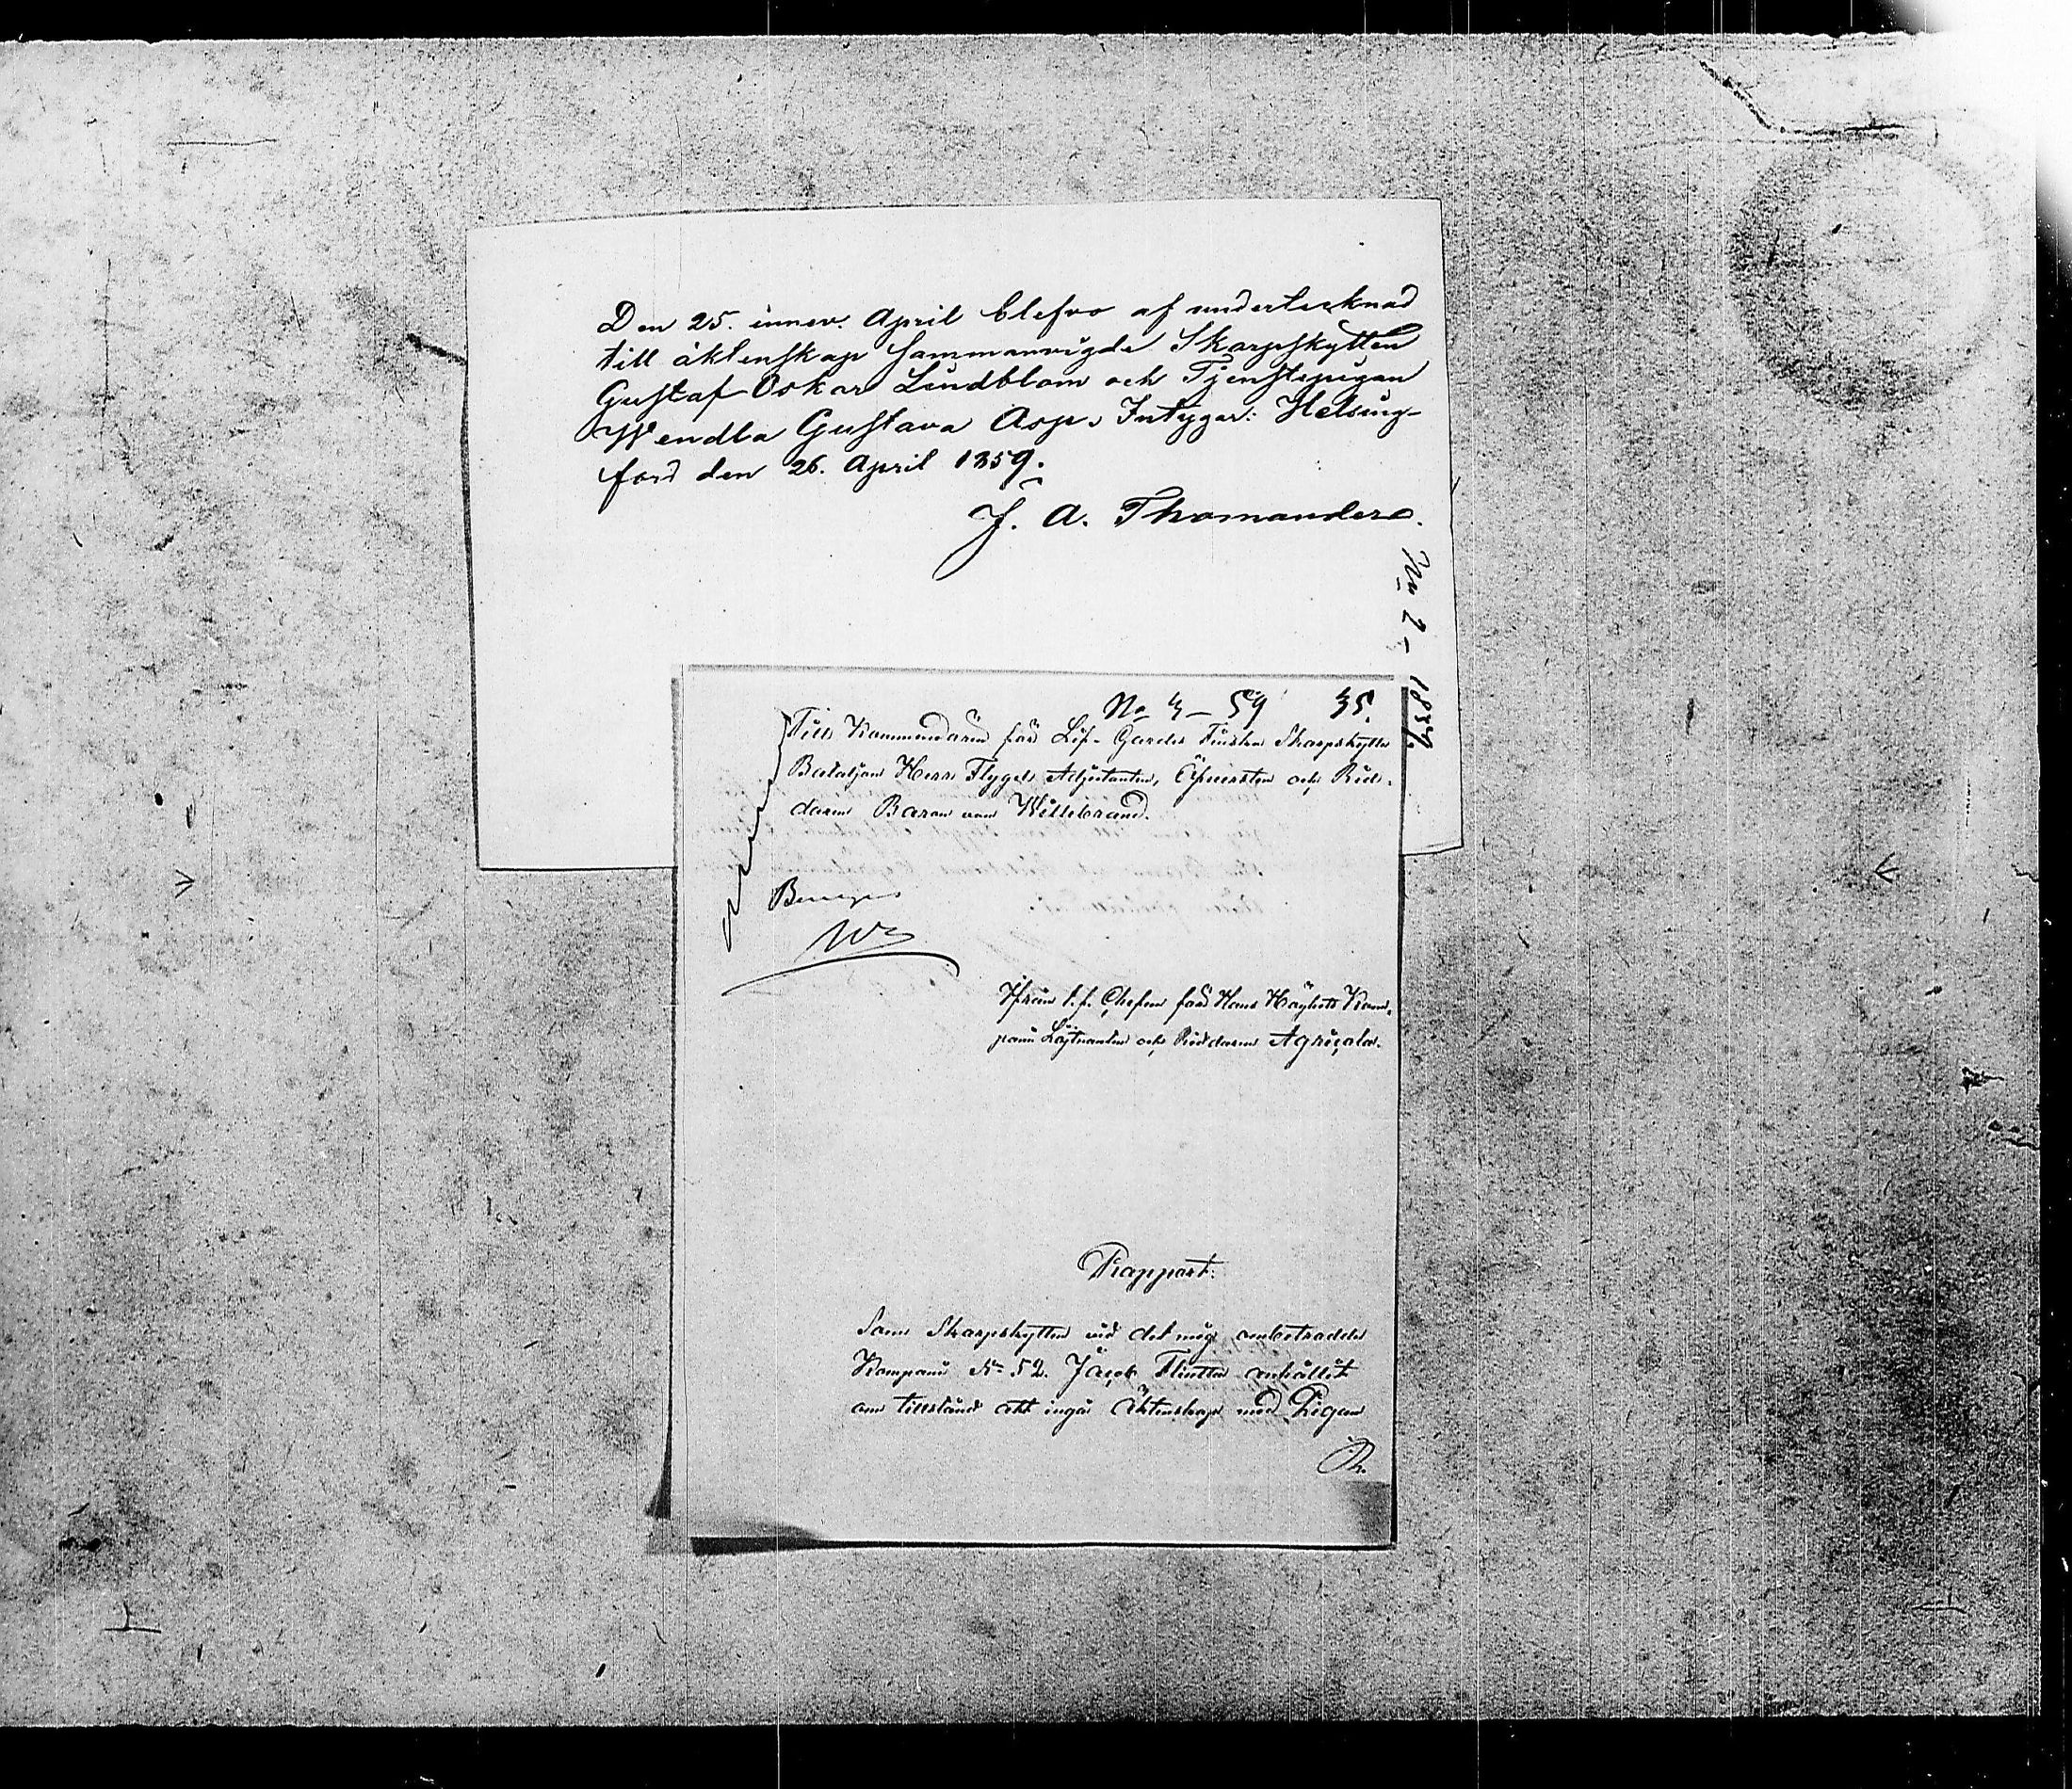 Den 25. innev. April blefvo af undertecknad
till äktenskap sammanvigde Skarpskytten
Gustaf Oskar Lindblom och Tjenstepigan
Wendla Gustava Asp. Intygar: Helsing-
fors den 26. April 1859.
J. A. Thomander.
No 2 - 1859.
No 3 - 59 35.
Till Kommendören för Lif-Gardes Finska Skarpskytte
Bataljon Herr Flygel Adjutanten, Öfversten och Rid-
daren Baron von Willebrand.
Beviljas
W
Ifrån t.f. Chefen för Hans Höghets Kom-
pani Löjtnanten och Riddaren Agricola.
Rapport:
Som Skarpskytten vid det mig anbetrodda
Kompani No 52. Jacob Flintta anhållit
om tillstånd att ingå Äktenskap med Pigan